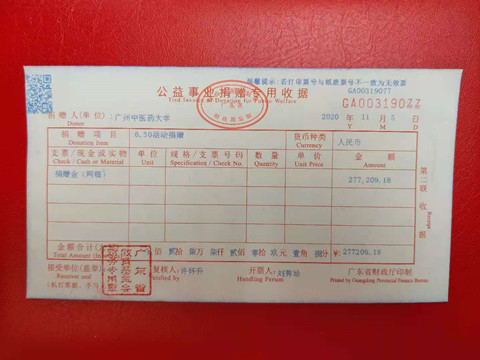 温馨提示：若打印票号与纸质票号不一致为无效票
公益事业捐赠专用收据
GA00319077
GA00319022
捐赠人(单位)：广州中医药大学
Donor
2020 年 11 月 5 日
Y M D
捐赠项目 6.30活动捐赠 货币种类 人民币
Donation Item Currency
支票/现金或实物 单位 规格/支票号码 数量 单价 金额
Check / Cash or Material Unit Specification / Check No. Quantity Unit Price Amount
捐赠金（网银） 277,209.18
金额合计
Total Amount
佰 贰拾 柒万 柒仟 贰佰 零拾 玖元 壹角 捌分 ¥：277209.18
接受单位 复核人：许怀升 开票人： 广东省财政厅印制
Receiver Verified by Handling Person Printed by Guangdong Provincial Finance Bureau
第二联 收据
Receipt